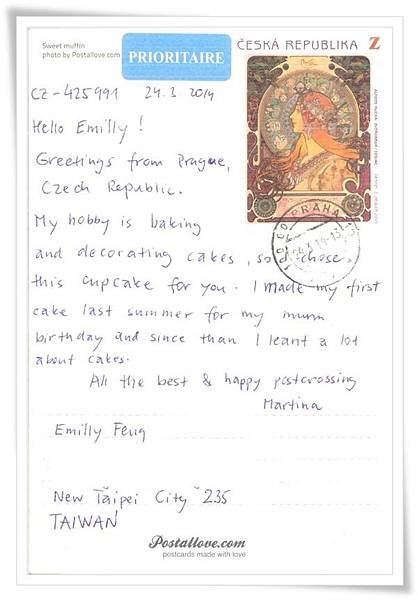 Sweet muffin
photo by Postallove.com
PRIORITAIRE
ČESKÁ REPUBLIKA Z
CZ-425991 24.3 2014
Hello Emilly!
Greetings from Prague,
Czech Republic.
My hobby is baking
and decorating cakes, so I chose
this cupcake for you. I made my first
cake last summer for my mum
birthday and since than I leant a lot
about cakes.
All the best & happy postcrossing
Martina
Emilly Feng
New Taipei City 235
TAIWAN
PRAHA
Postallove.com
postcards made with love